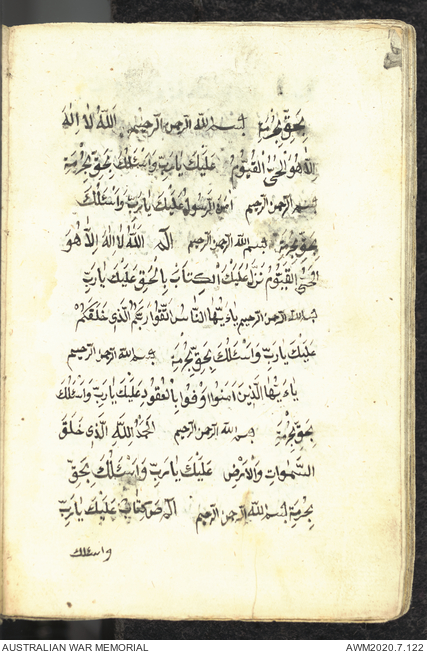 بِحَقِّ بِحُرْمَةِ بسم الله الرحمن الرحيم اَللهُ لَا اِلٰهَ
اِلَّا هُوَ الْحَىُّ الْقَيُّومُ عَلَيْكَ يَارَبِّ وَاَسْئَلُكَ بِحَقِّ بِحُرْمَةِ
بسم الله الرحمن الرحيم امن الرسول عَلَيْكَ يَارَبِّ وَاَسْئَلُكَ
بِحَقِّ بِحُرْمَةِ بسم الله الرحمن الرحيم الم اَللهُ لَا اِلٰهَ اِلَّا هُوَ
الْحَىُّ الْقَيُّومُ نَزَّلَ عَلَيْكَ الْكِتَابَ بِالْحَقِّ عَلَيْكَ يَارَبِّ
بسم الله الرحمن الرحيم يَاءَيُّهَا النَّاسُ اتَّقُوا رَبَّكُمُ الَّذِى خَلَقَكُمْ
عَلَيْكَ يَارَبِّ وَاَسْئَلُكَ بِحَقِّ بِحُرْمَةِ بسم الله الرحمن الرحيم
يَاءَيُّهَا الَّذِينَ اٰمَنُوا اَوْفُوا بِالْعُقُودِ عَلَيْكَ يَارَبِّ وَاَسْئَلُكَ
بِحَقِّ بِحُرْمَةِ بسم الله الرحمن الرحيم اَلْحَمْدُ لِلّٰهِ الَّذِى خَلَقَ
السَّمٰوَاتِ وَالْاَرْضِ عَلَيْكَ يَارَبِّ وَاَسْئَلُكَ بِحَقِّ
بِحُرْمَةِ بسم الله الرحمن الرحيم المص كِتَابٌ عَلَيْكَ يَارَبِّ
واسئلك
AUSTRALIAN WAR MEMORIAL AWM2020.7.122